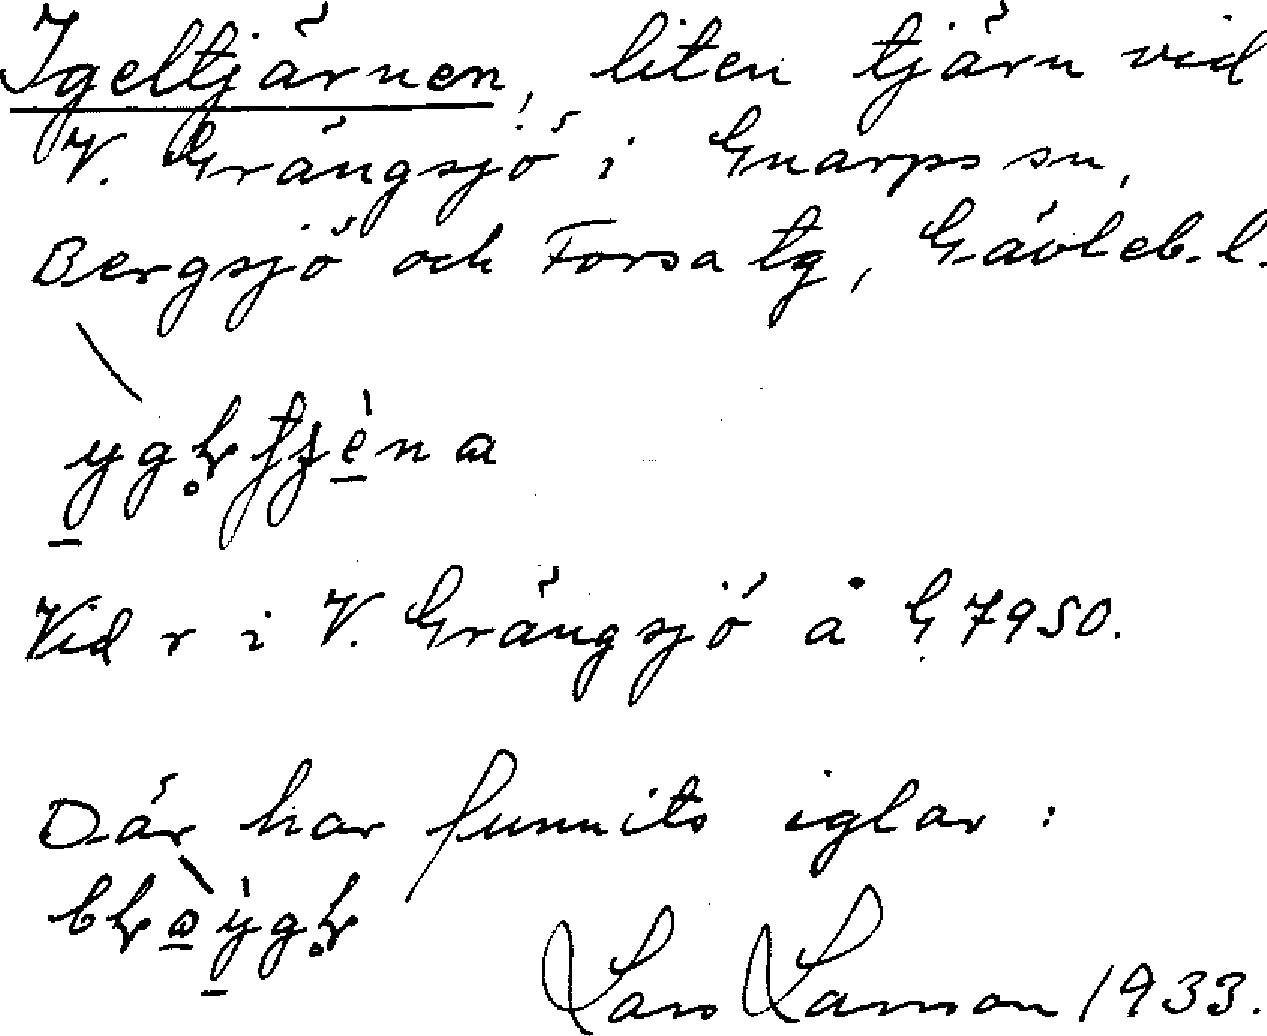 Igeltjärnen, liten tjärn vid
V. Grängsjö i Gnarps sn,
Bergsjö och Forsa tg, Gävleb. l.
Vid r i V. Grängsjö å G 7950.
Där har funnits iglar:
Lars Larsson 1933.